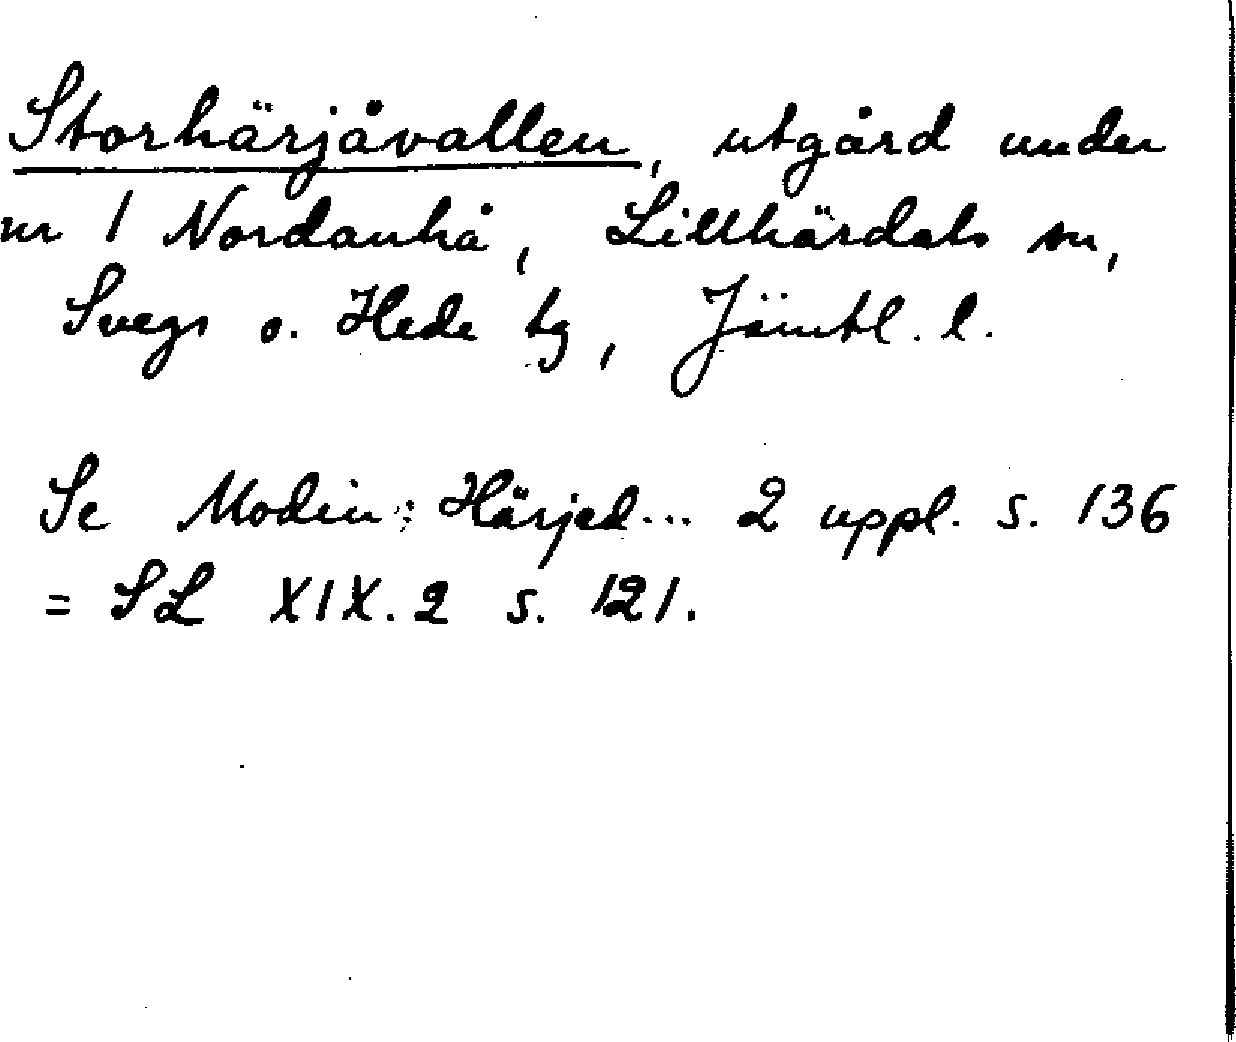 Storhärjåvallen, utgård under
nr 1 Nordanhå, Lillhärdals sn,
Svegs o. Hede tg, Jämtl. l.
Se Modin: Härjed... 2 uppl. s. 136
= SL XIX. 2 s. 121.